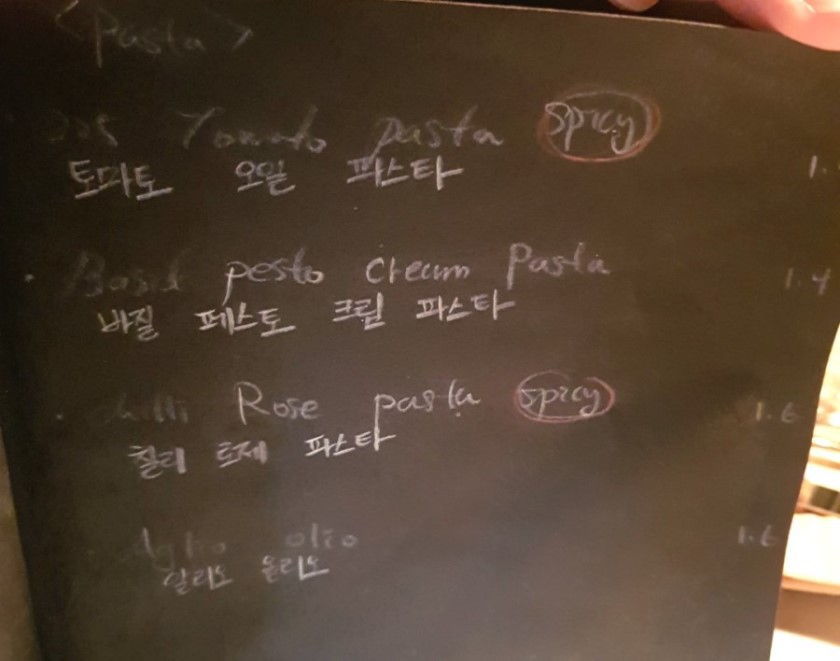 <Pasta>
Tomato pasta spicy
토마토 오일 파스타
Basil pesto cream pasta 1.4
바질 페스토 크림 파스타
chilli Rose pasta spicy 1.6
칠리 로제 파스타
Aglio olio 1.6
알리오 올리오